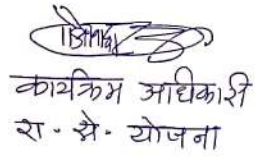 कार्यक्रम आधिकारी
रा - से - योजना